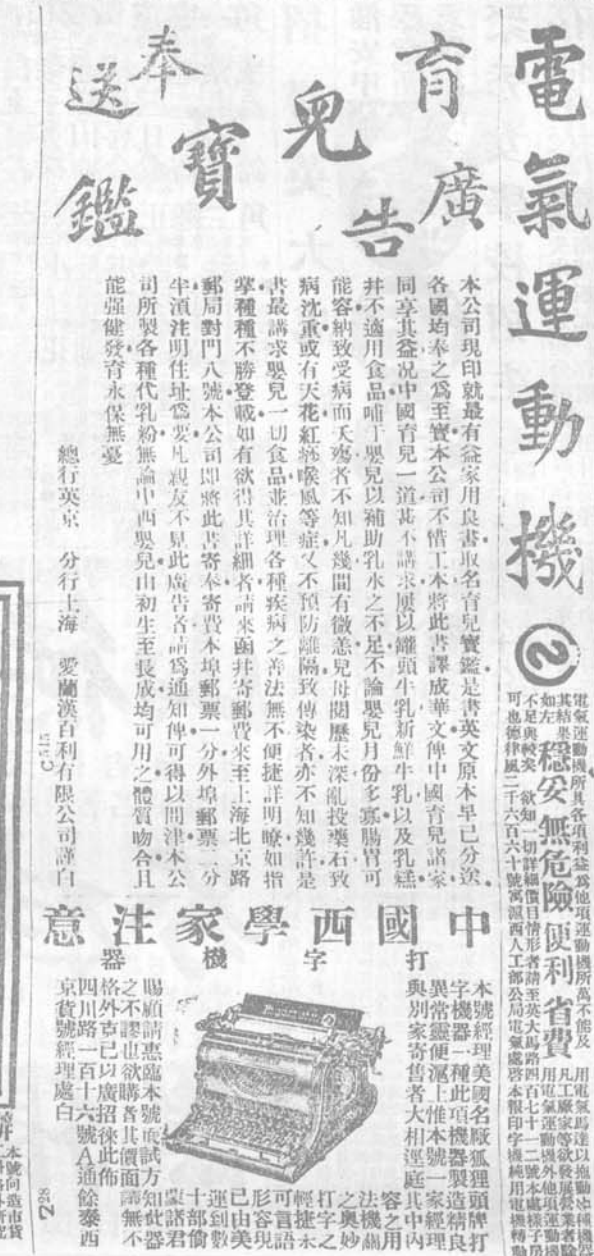 電氣運動機
②
電氣運動機所具各項利益爲他項運動機所萬不能及
其結果
如左
穩妥無危險便利省費
不足與較矣 欲知一切詳細價目情形者請至英大馬路四百七十一二號本處樣子房
可也德律風二千六百六十號寓滬西人工部公局電氣處啓本報印字機純用電機轉
用電氣馬達以拖動
凡工廠家等欲發展營業者
用電氣運動機外他項運動機
育兒寶鑑
廣告
奉送
本公司現印就最有益家用良書取名育兒寶鑑是書英文原本早已分送
各國均奉之爲至寶本公司不惜工本將此書譯成華文俾中國育兒諸家
同享其益况中國育兒一道甚不講求屢以罐頭牛乳新鮮牛乳以及乳糕
幷不適用食品哺于嬰兒以補助乳水之不足不論嬰兒月份多寡腸胃可
能容納致受病而夭殤者不知凡幾間有微恙兒母閱歷未深亂投藥石致
病沈重或有天花紅痧喉風等症又不預防離隔致傳染者亦不知幾許是
書最講求嬰兒一切食品並治理各種疾病之善法無不便捷詳明瞭如指
掌種種不勝登載如有欲得其詳細者請來函幷寄郵費來至上海北京路
郵局對門八號本公司即將此書寄奉寄費本埠郵票一分外埠郵票二分
半須注明住址爲要凡親友不見此廣告者請爲通知俾可得以問津本公
司所製各種代乳粉無論中西嬰兒由初生至長成均可用之體質吻合且
能强健發育永保無憂
總行英京 分行上海 愛蘭漢百利有限公司謹白
中國西學家注意
打字機器
本號經理美國名廠狐狸頭牌打
字機器一種此項機器製造精良
異常靈便滬上惟本號一家經理
與別家寄售者大相逕庭其中內
容之用
法機關
之奧妙
打字之
輕捷未
可言語
形容現
已由美
運到數
十部倘
蒙諸君
賜顧請惠臨本號面試方知此器
之不謬也欲購者其價面議無不
格外克己以廣招徠此佈
四川路一百十六號A通餘泰西
京貨號經理處白
298
本號向造市貨